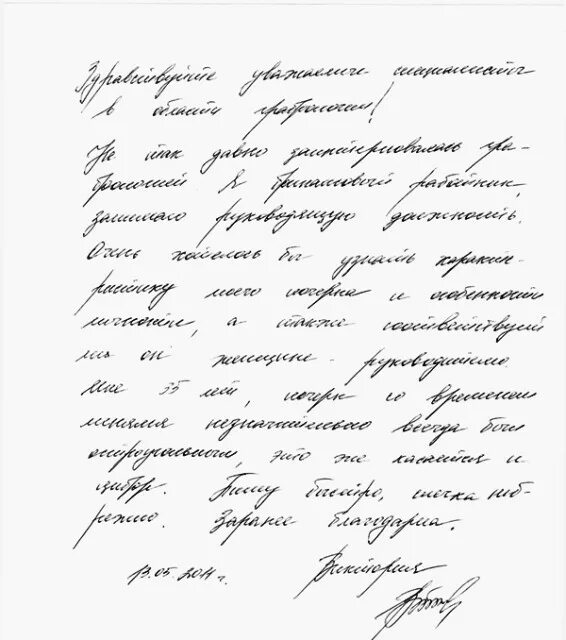 Здравствуйте уважаемые специалисты
в области графологии!
Не так давно заинтересовалась гра-
фологией. Я финансовый работник,
занимаю руководящую должность.
Очень хотелось бы узнать характе-
ристику моего почерка и особенности
личности, а также соответствует
ли он женщине - руководителю.
Мне 35 лет, почерк со временем
менялся незначительно всегда был
остроугольным, это же касается и
цифр. Пишу быстро, слегка неб-
режно. Заранее благодарна.
13.05.2011 г. Виктория